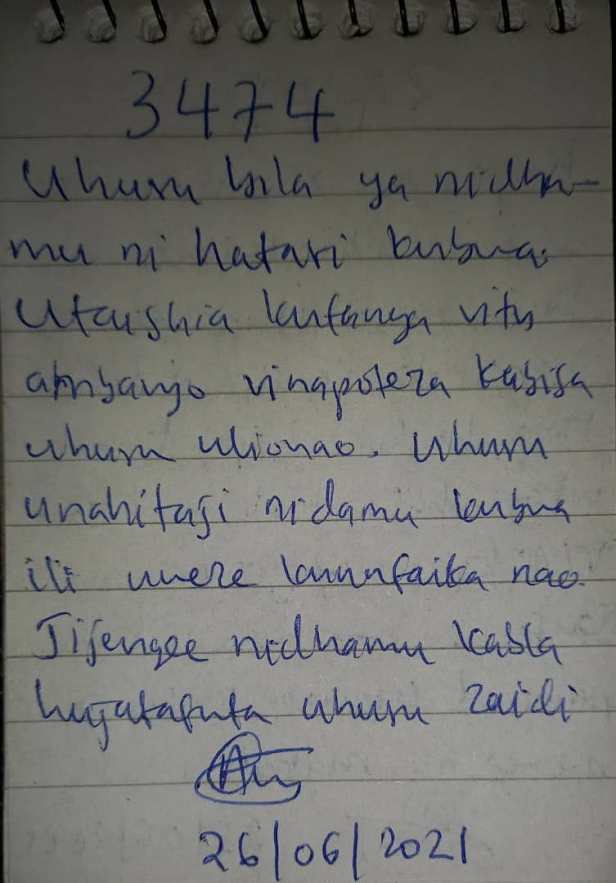 3474
Uhuru bila ya nidha-
mu ni hatari kubwa.
Utaishia kufanya vitu
ambavyo vinapoteza kabisa
uhuru ulionao. Uhuru
unahitaji nidamu kubwa
ili uweze kunufaika nao.
Jijengee nidhamu kabla
hujatafuta uhuru zaidi
26/06/2021